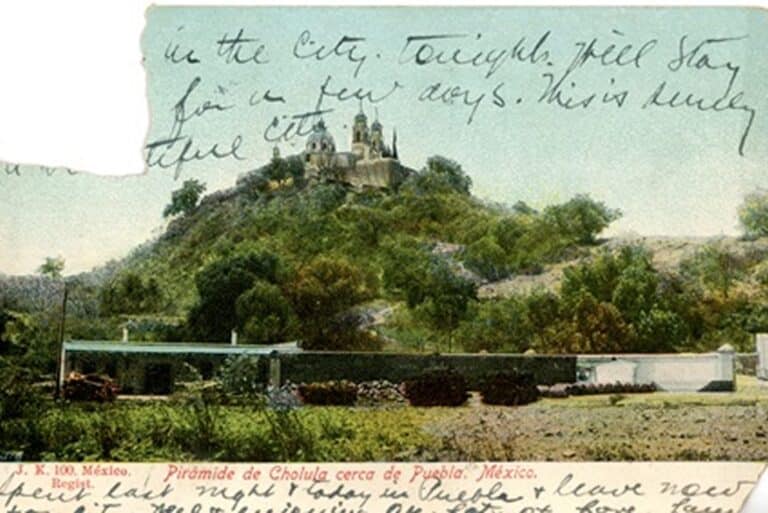 in the City. tonight. Will Stay
for a few days. This is surely
a beautiful city.
J. K. 100. México.
Regist.
Pirámide de Cholula cerca de Puebla. México.
Spent last night & today in Puebla & leave now